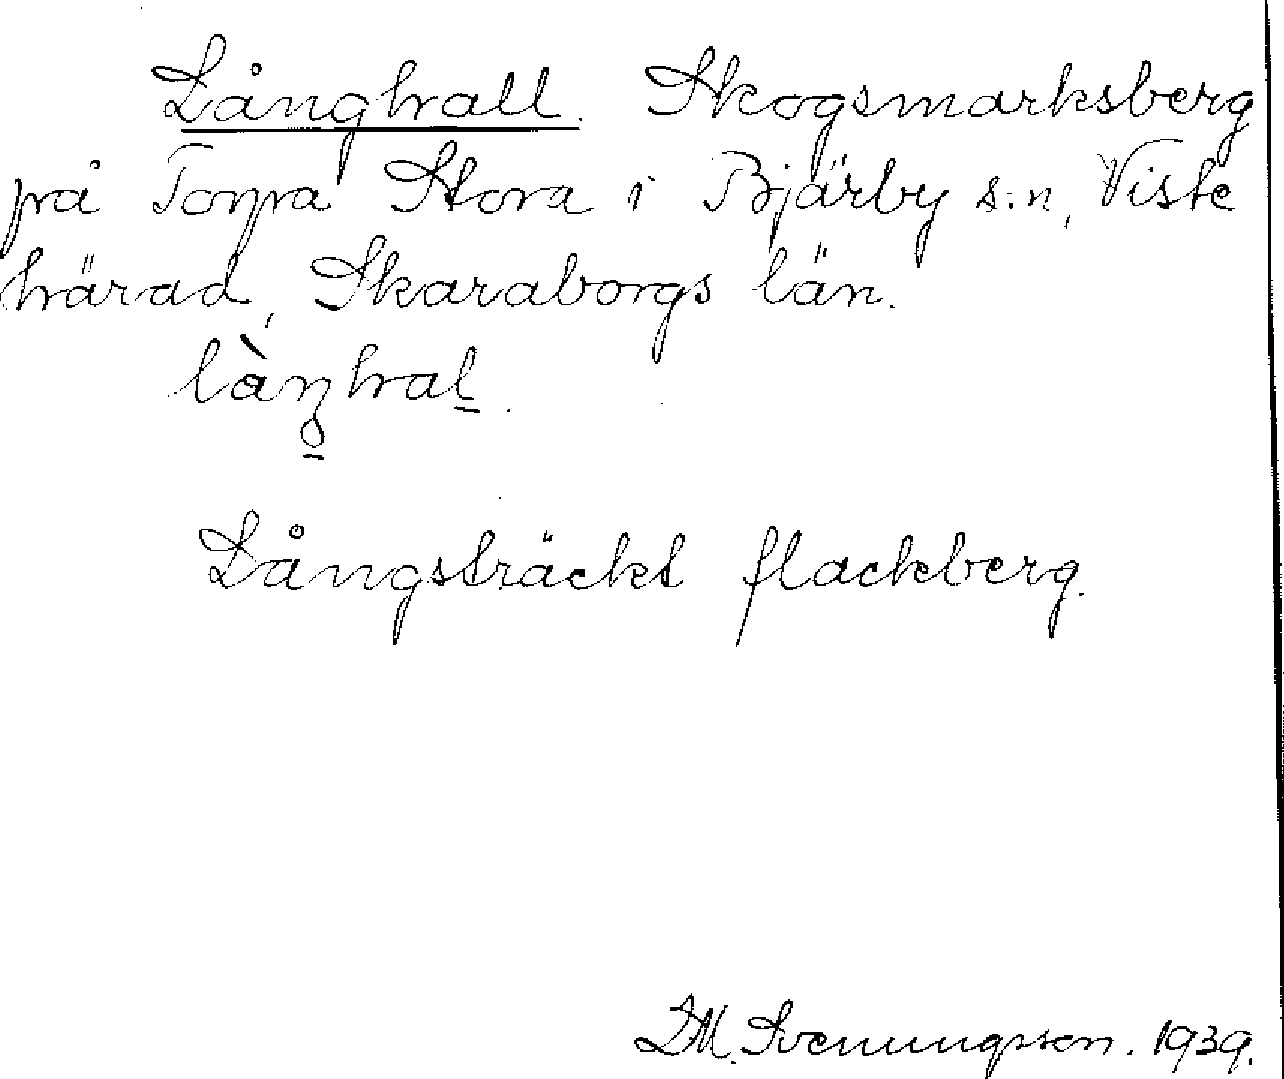 Långhall. Skogsmarksberg
på Torpa Stora i Bjärby s:n, Viste
härad, Skaraborgs län.
Långsträckt flackberg.
D.M. Svenungsson. 1939.